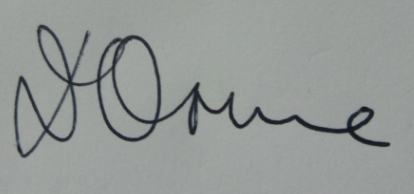 D Orme